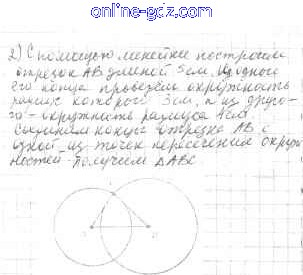 online-gdz.com
2) С помощью линейки построим
отрезок AB длиной 5 см. Из одного
его конца проведём окружность
радиус которой 3 см, а из друго-
го - окружность радиуса 4 см
Соединим концы отрезка AB с
одной из точек пересечения окруж
ностей - получим ΔABC